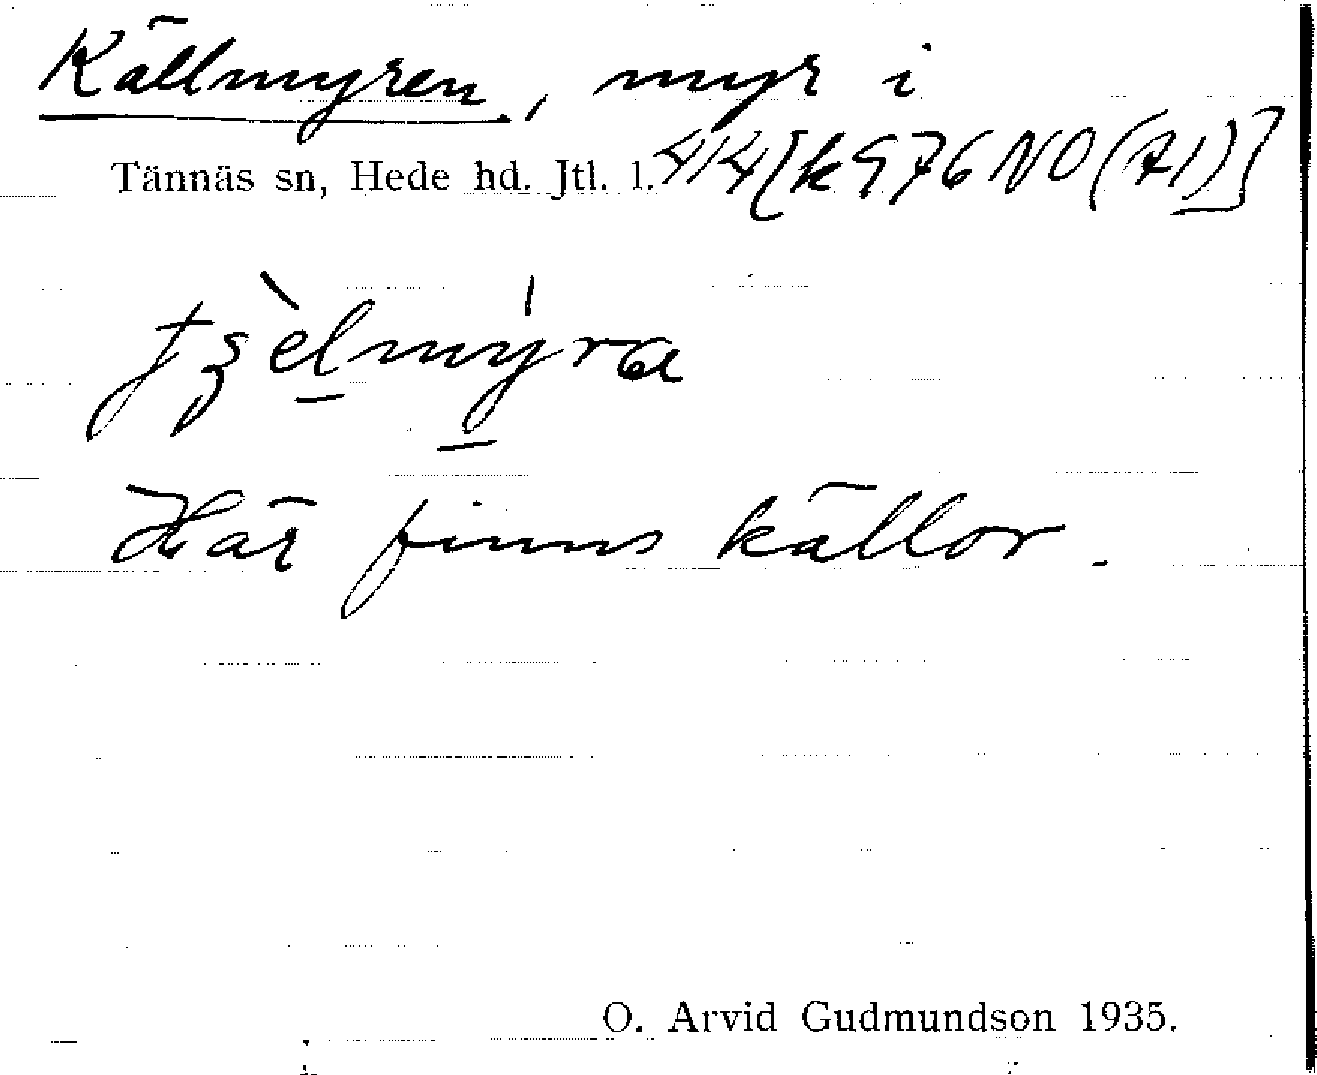 Källmyren, myr i
Tännäs sn, Hede hd. Jtl. l. 414 [k 976 NO (A1)]
Här finns källor.
O. Arvid Gudmundson 1935.